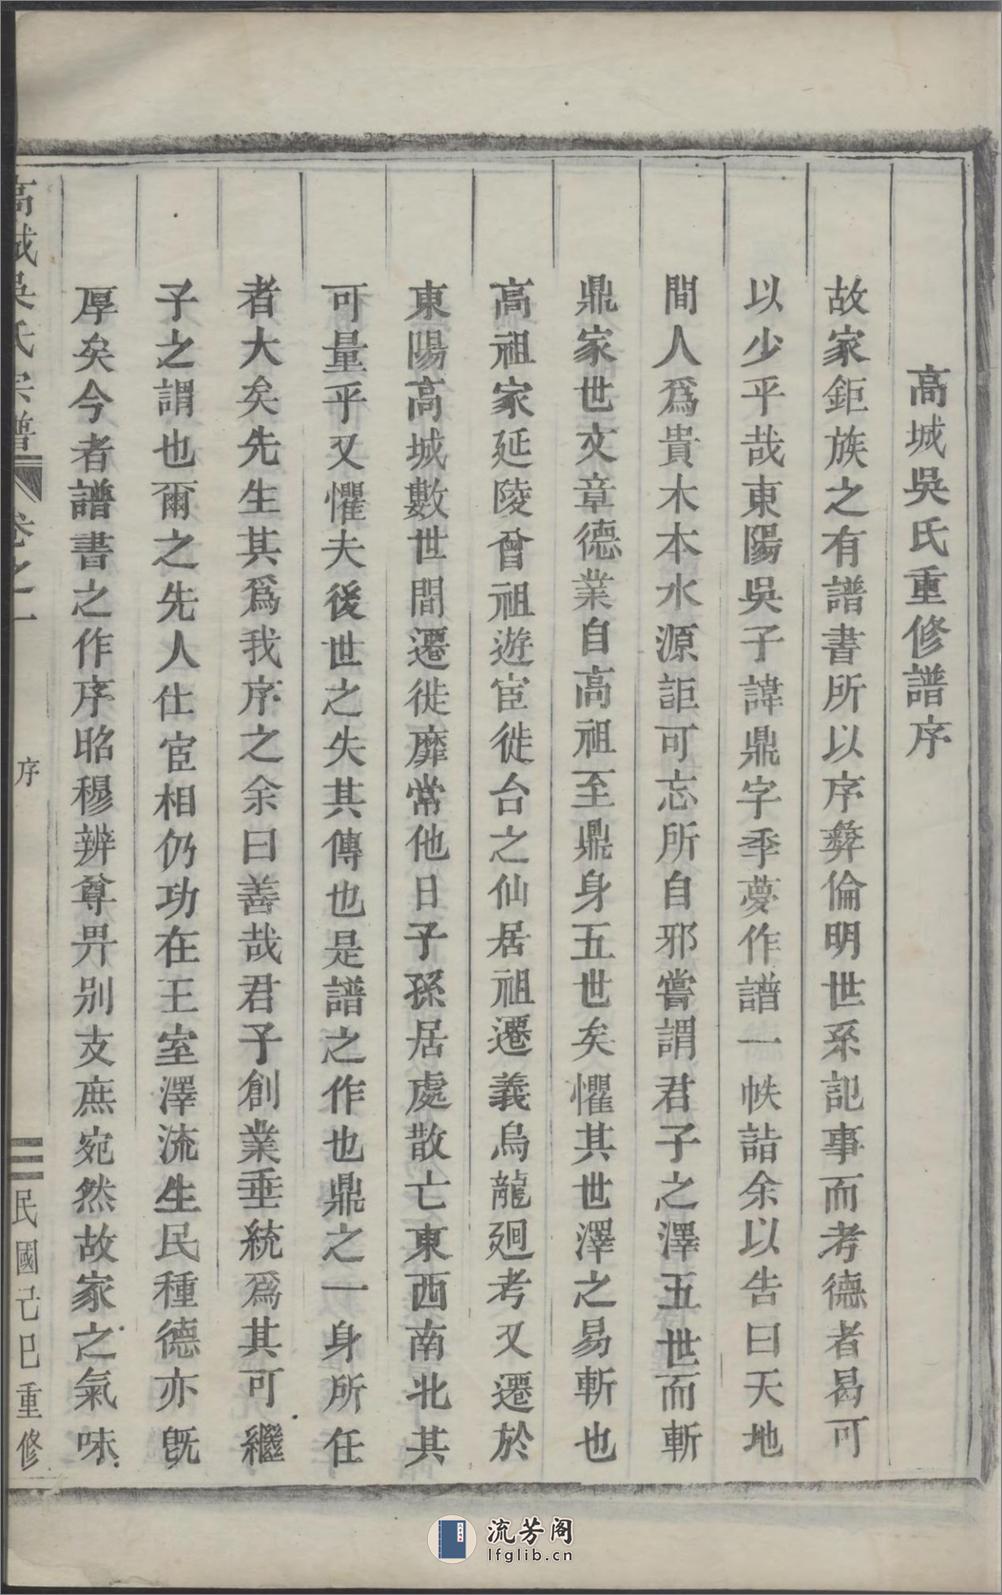 高城吳氏重修譜序
故家鉅族之有譜書所以序彜倫明世系記事而考德者曷可
以少乎哉東陽吳子諱鼎字季夢作譜一帙詣余以告曰天地
間人爲貴木本水源詎可忘所自邪嘗謂君子之澤五世而斬
鼎家世文章德業自高祖至鼎身五世矣懼其世澤之易斬也
高祖家延陵曾祖遊宦徙台之仙居祖遷義烏龍廻考又遷於
東陽高城數世間遷徙靡常他日子孫居處散亡東西南北其
可量乎又懼夫後世之失其傳也是譜之作也鼎之一身所任
者大矣先生其爲我序之余曰善哉君子創業垂統爲其可繼
子之謂也爾之先人仕宦相仍功在王室澤流生民種德亦旣
厚矣今者譜書之作序昭穆辨尊畀別支庶宛然故家之氣味
高城吳氏宗譜 卷之一 序 民國己巳重修
流芳阁
lfglib.cn